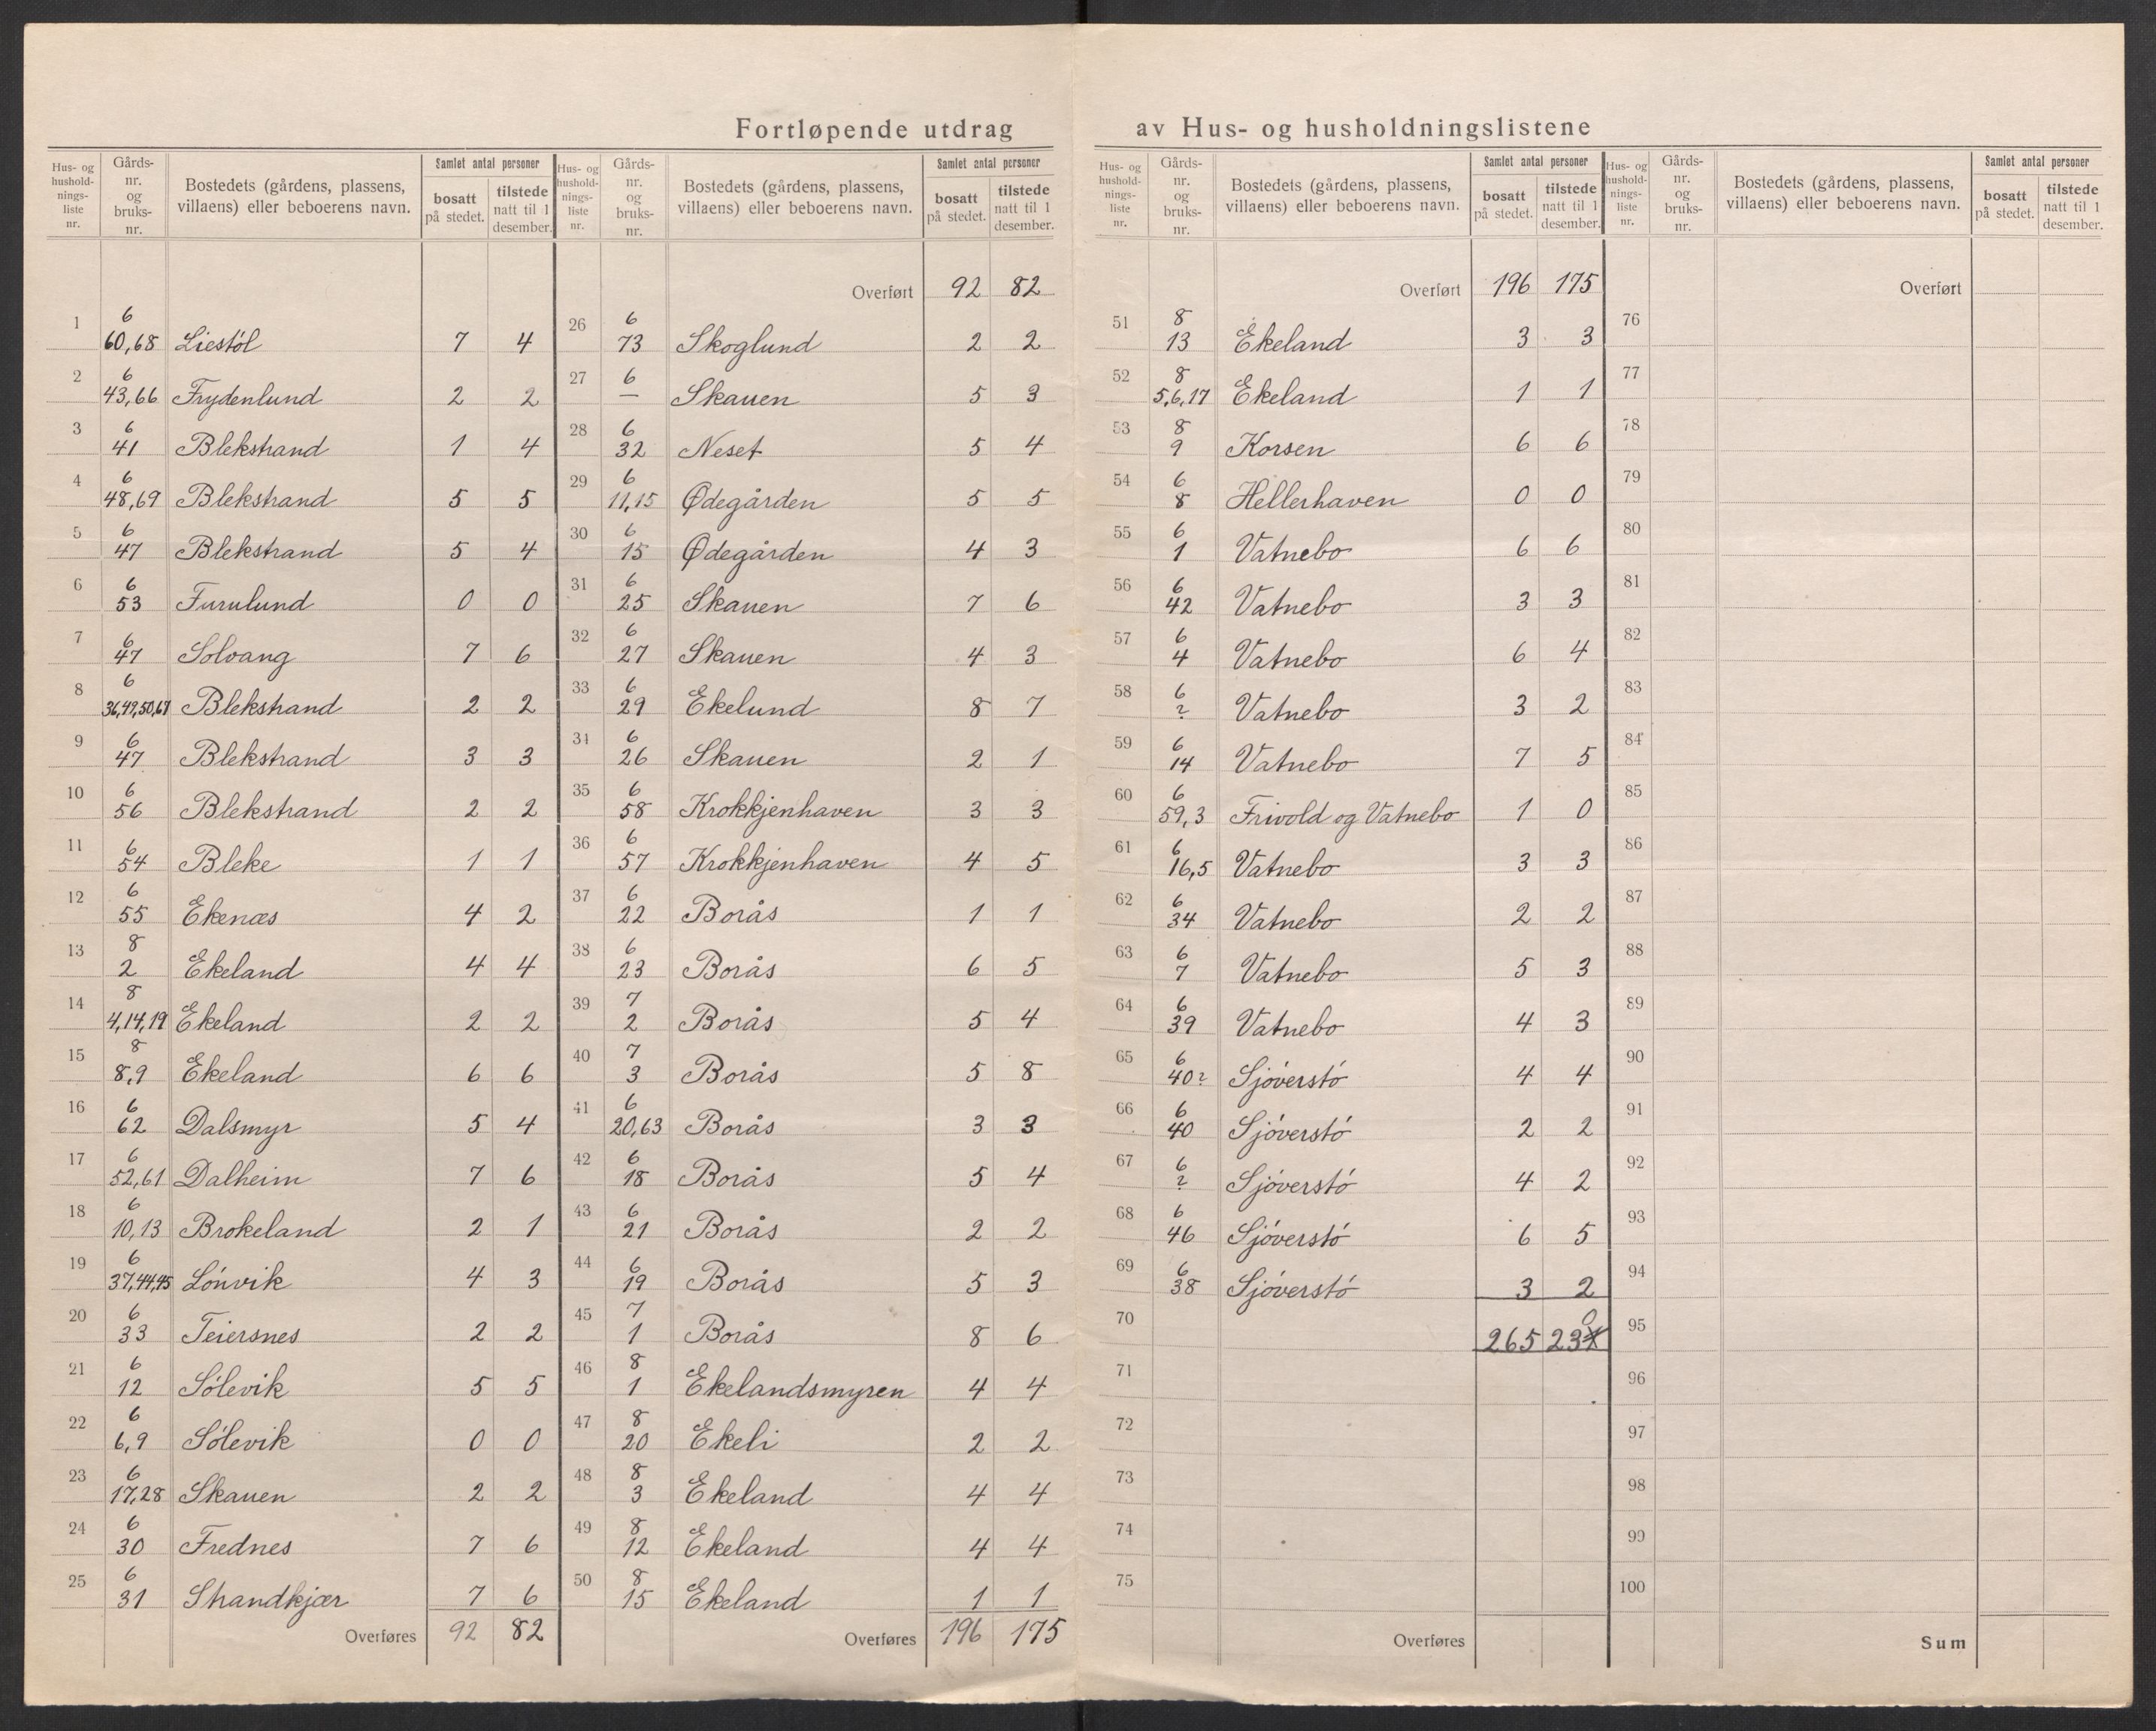 Fortløpende utdrag av Hus- og husholdningslistene
Hus- og hushold- nings- liste nr. | Gårds- nr. og bruks- nr. | Bostedets (gårdens, plassens, villaens) eller beboerens navn. | Samlet antal personer | bosatt på stedet. | tilstede natt til 1 desember.
1 | 6 60,68 | Liestøl | 7 | 4
2 | 6 43,66 | Frydenlund | 2 | 2
3 | 6 41 | Blekstrand | 1 | 4
4 | 6 48,69 | Blekstrand | 5 | 5
5 | 6 47 | Blekstrand | 5 | 4
6 | 6 53 | Furulund | 0 | 0
7 | 6 47 | Solvang | 7 | 6
8 | 6 36,49,50,67 | Blekstrand | 2 | 2
9 | 6 47 | Blekstrand | 3 | 3
10 | 6 56 | Blekstrand | 2 | 2
11 | 6 54 | Bleke | 1 | 1
12 | 6 55 | Ekenæs | 4 | 2
13 | 8 2 | Ekeland | 4 | 4
14 | 8 4,14,19 | Ekeland | 2 | 2
15 | 8 8,9 | Ekeland | 6 | 6
16 | 6 62 | Dalsmyr | 5 | 4
17 | 6 52,61 | Dalheim | 7 | 6
18 | 6 10,13 | Brokeland | 2 | 1
19 | 6 37,44,45 | Lónvik | 4 | 3
20 | 6 33 | Teiersnes | 2 | 2
21 | 6 12 | Sólevik | 5 | 5
22 | 6 6,9 | Sólevik | 0 | 0
23 | 6 17,28 | Skauen | 2 | 2
24 | 6 30 | Frednes | 7 | 6
25 | 6 31 | Strandkjær | 7 | 6
Overføres | 92 | 82
Hus- og hushold- nings- liste nr. | Gårds- nr. og bruks- nr. | Bostedets (gårdens, plassens, villaens) eller beboerens navn. | Samlet antal personer | bosatt på stedet. | tilstede natt til 1 desember.
Overført | 92 | 82
26 | 6 73 | Skoglund | 2 | 2
27 | 6 — | Skauen | 5 | 3
28 | 6 32 | Neset | 5 | 4
29 | 6 11,15 | Ødegården | 5 | 5
30 | 6 15 | Ødegården | 4 | 3
31 | 6 25 | Skauen | 7 | 6
32 | 6 27 | Skauen | 4 | 3
33 | 6 29 | Ekelund | 8 | 7
34 | 6 26 | Skauen | 2 | 1
35 | 6 58 | Krokkjenhaven | 3 | 3
36 | 6 57 | Krokkjenhaven | 4 | 5
37 | 6 22 | Borås | 1 | 1
38 | 6 23 | Borås | 6 | 5
39 | 7 2 | Borås | 5 | 4
40 | 7 3 | Borås | 5 | 8
41 | 6 20,63 | Borås | 3 | 3
42 | 6 18 | Borås | 5 | 4
43 | 6 21 | Borås | 2 | 2
44 | 6 19 | Borås | 5 | 3
45 | 7 1 | Borås | 8 | 6
46 | 8 1 | Ekelandsmyren | 4 | 4
47 | 8 20 | Ekeli | 2 | 2
48 | 8 3 | Ekeland | 4 | 4
49 | 8 12 | Ekeland | 4 | 4
50 | 8 15 | Ekeland | 1 | 1
Overføres | 196 | 175
Hus- og hushold- nings- liste nr. | Gårds- nr. og bruks- nr. | Bostedets (gårdens, plassens, villaens) eller beboerens navn. | Samlet antal personer | bosatt på stedet. | tilstede natt til 1 desember.
Overført | 196 | 175
51 | 8 13 | Ekeland | 3 | 3
52 | 8 5,6,17 | Ekeland | 1 | 1
53 | 8 9 | Korsen | 6 | 6
54 | 6 8 | Hellerhaven | 0 | 0
55 | 6 1 | Vatnebo | 6 | 6
56 | 6 42 | Vatnebo | 3 | 3
57 | 6 4 | Vatnebo | 6 | 4
58 | 6 ? | Vatnebo | 3 | 2
59 | 6 14 | Vatnebo | 7 | 5
60 | 6 59,3 | Frivold og Vatnebo | 1 | 0
61 | 6 16,5 | Vatnebo | 3 | 3
62 | 6 34 | Vatnebo | 2 | 2
63 | 6 7 | Vatnebo | 5 | 3
64 | 6 39 | Vatnebo | 4 | 3
65 | 6 40? | Sjóverstó | 4 | 4
66 | 6 40 | Sjóverstó | 2 | 2
67 | 6 ? | Sjóverstó | 4 | 2
68 | 6 46 | Sjóverstó | 6 | 5
69 | 6 38 | Sjóverstó | 3 | 2
70 | 265 | 230
71
72
73
74
75
Overføres
Hus- og hushold- nings- liste nr. | Gårds- nr. og bruks- nr. | Bostedets (gårdens, plassens, villaens) eller beboerens navn. | Samlet antal personer | bosatt på stedet. | tilstede natt til 1 desember.
Overført
76
77
78
79
80
81
82
83
84
85
86
87
88
89
90
91
92
93
94
95
96
97
98
99
100
Sum